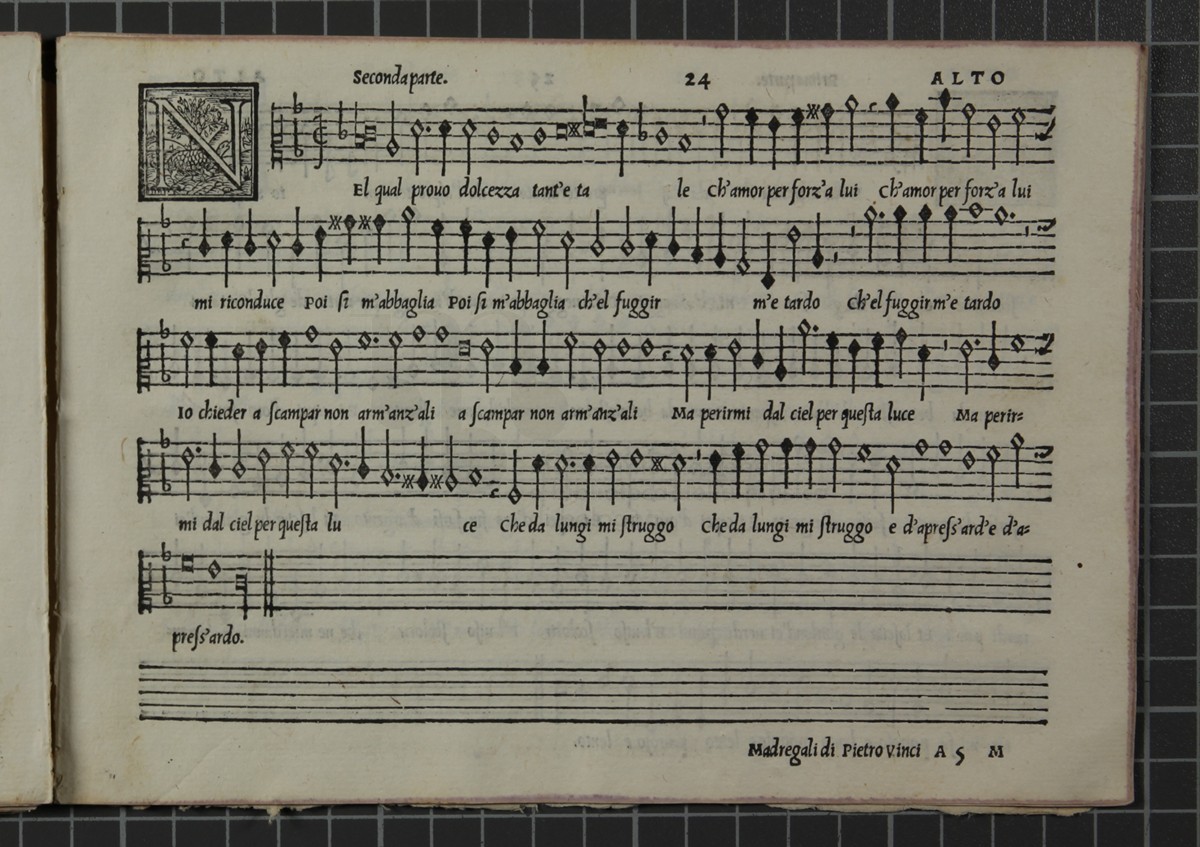 Seconda parte. 24 ALTO
NEl qual prouo dolcezza tant'e ta le Ch'amor per forz'a lui Ch'amor per forz'a lui
mi riconduce Poi ſi m'abbaglia Poi ſi m'abbaglia ch'el fuggir m'e tardo Ch'el fuggir m'e tardo
Io chieder a ſcampar non arm'anz'ali a ſcampar non arm'anz'ali Ma perirmi dal ciel per queſta luce Ma perir=
mi dal ciel per queſta lu ce Che da lungi mi ſtruggo Che da lungi mi ſtruggo e d'apreſs'ard'e d'a=
preſs'ardo.
Madregali di Pietro Vinci A 5 M